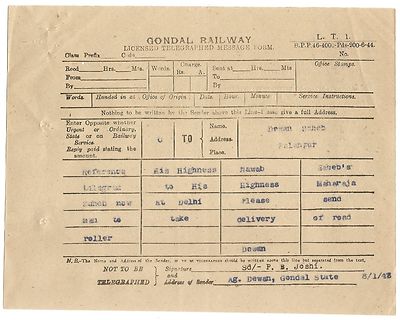 GONDAL RAILWAY
L. T. 1.
LICENSED TELEGRAPHED MESSAGE FORM.
B.P.P.46-400.-Pds-200-6-44.
Class Prefix Code No.
Recd Hrs. Mts. Words. Charge. Sent at Hrs. Mts. Office Stamps.
From Rs. A. To
By By
Words. Handed in at Office of Origin. Date. Hour. Minute. Service Instructions.
Nothing to be written by the Sender above this Line—1 ans give a full Address.
Enter Opposite whether
Urgent or Ordinary.
State or on Railway
Service.
Reply paid stating the
amount.
O TO
Name. Dewan Saheb
Address. Palanpur
Place.
Reference His Highness Nawab Saheb's
telegram to His Highness Maharaja
Saheb now At Delhi Please send
man to take delivery of road
roller
Dewan
N.B.—The Name and Address of the Sender, if to be telegraphed should be written above this line but separated from the text.
NOT TO BE TELEGRAPHED
Signature and Address of Sender
Sd/- P. B. Joshi.
Ag. Dewan, Gondal State 8/1/48